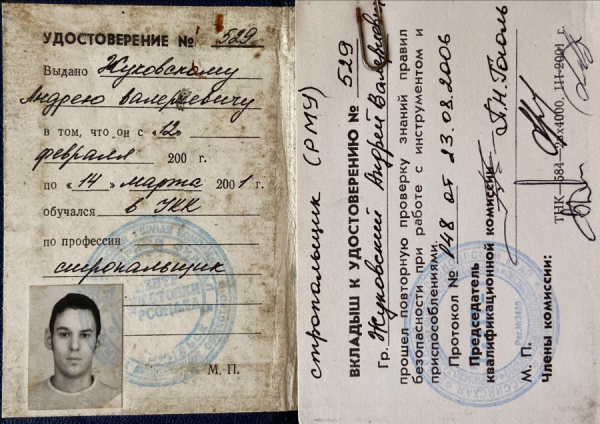 УДОСТОВЕРЕНИЕ № 529
Выдано Жуковскому
Андрею Валериевичу
в том, что он с «12»
февраля 200 г.
по «14» марта 2001 г.
обучался в УКК
по профессии
стропальщик
М. П.
стропальщик (РМУ)
ВКЛАДЫШ К УДОСТОВЕРЕНИЮ № 529
Гр. Жуковский Андрей Валериевич
прошел повторную проверку знаний правил
безопасности при работе с инструментом и
приспособлениями.
Протокол № 148 от 23.03.2006
Председатель
квалификационной комиссии
М. П.
Члены комиссии: